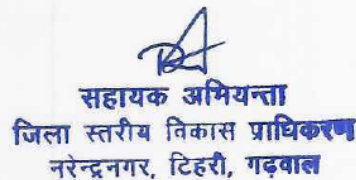 सहायक अभियन्ता
जिला स्तरीय विकास प्राधिकरण
नरेन्द्रनगर, टिहरी, गढ़वाल